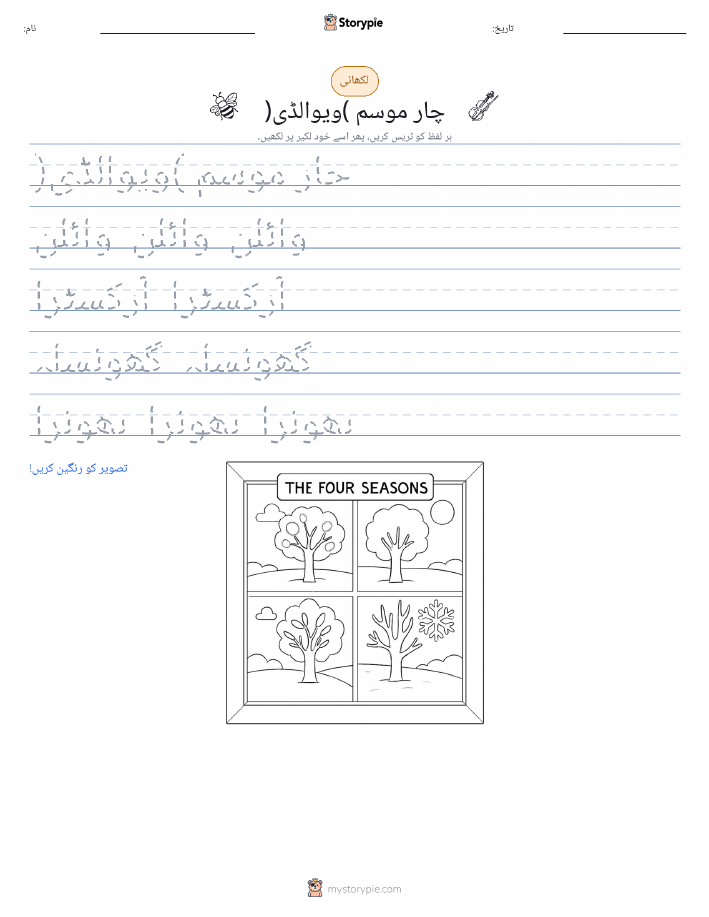 نام:
Storypie
تاریخ:
لکھائی
چار موسم )ویوالڈی(
ہر لفظ کو ٹریس کریں، پھر اسے خود لکیر پر لکھیں۔
چار موسم )ویوالڈی(
وائلن وائلن وائلن
آرکسٹرا آرکسٹرا
گھونسلہ گھونسلہ
بھونرا بھونرا بھونرا
تصویر کو رنگین کریں!
THE FOUR SEASONS
mystorypie.com